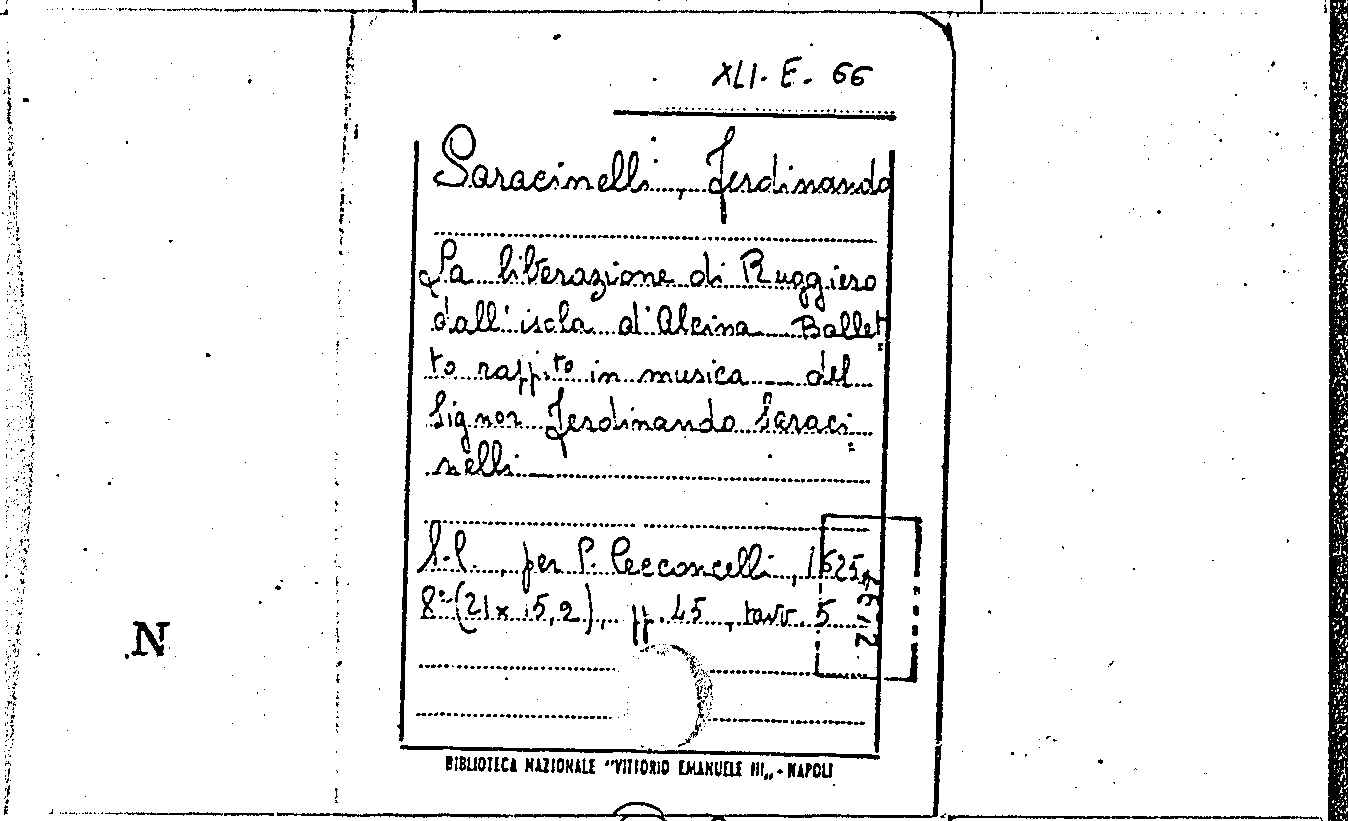 XLI. E. 66
Saracinelli, Ferdinando
La liberazione di Ruggiero
dall'isola d'Alcina Ballet=
to rapp.to in musica del
Signor Ferdinando Saraci=
nelli
S.l., per P. Cecconcelli, 1625
8º (21x15,2), pp. 45, tavv. 5
N
BIBLIOTECA NAZIONALE "VITTORIO EMANUELE III„ - NAPOLI